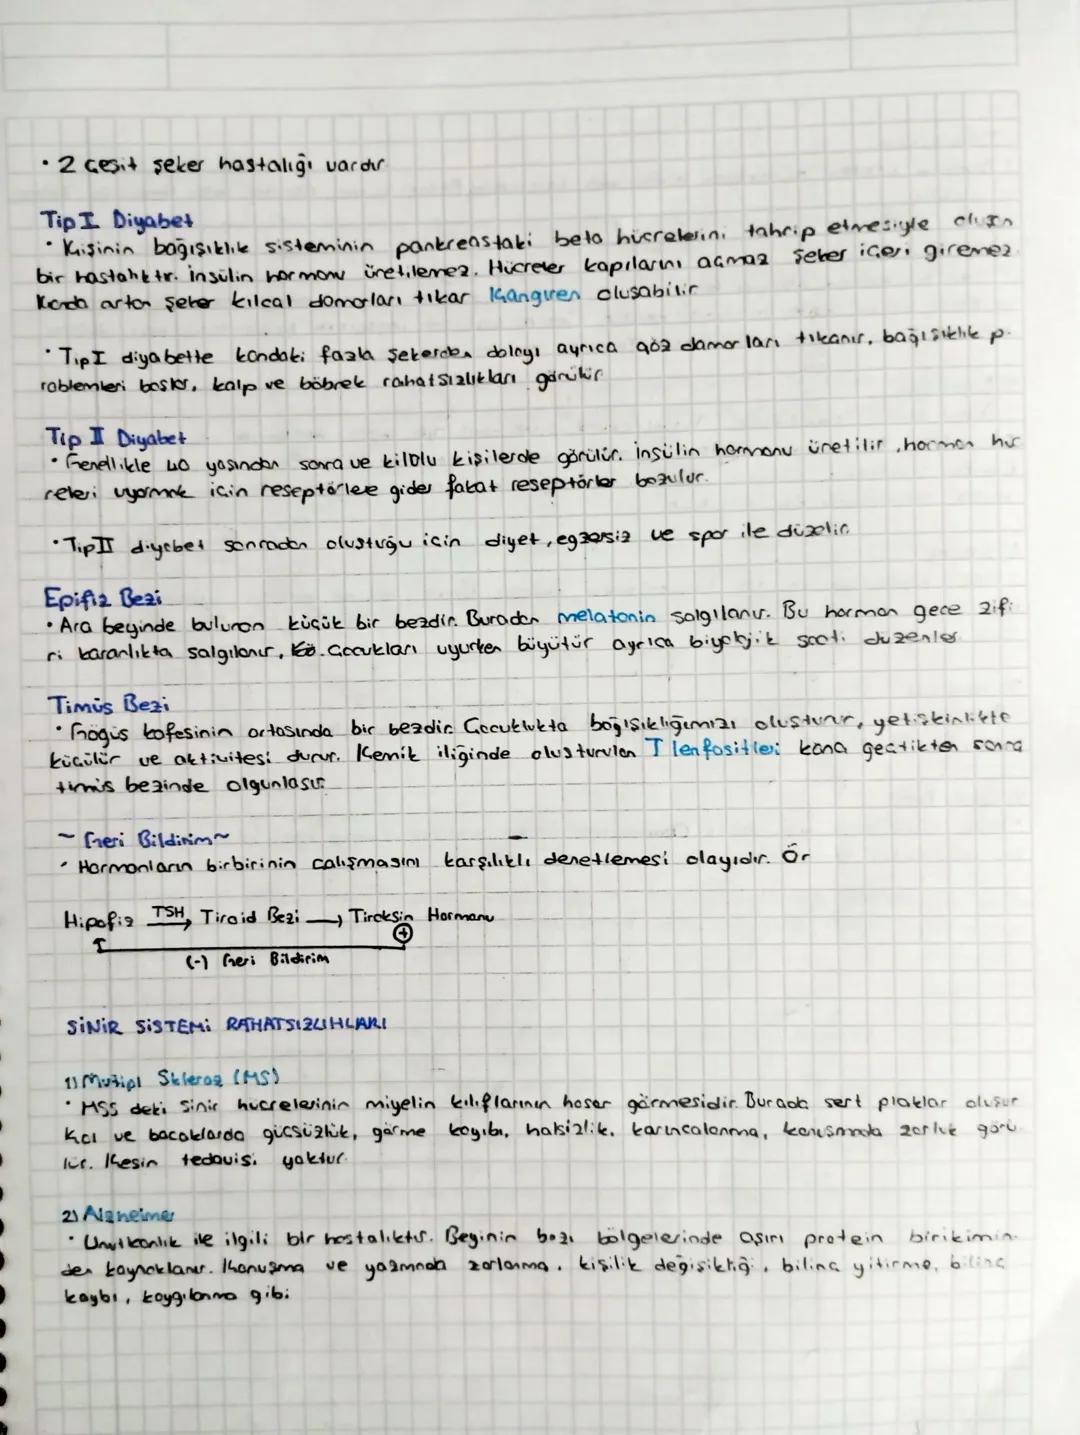 • 2 çeşit şeker hastalığı vardır
Tip I Diyabet
• Kişinin bağışıklık sisteminin pankreastaki beta hücrelerini tahrip etmesiyle oluşan
bir hastalıktır. İnsülin hormonu üretilemez. Hücreler kapılarını açmaz şeker içeri giremez.
Kanda artan şeker kılcal damarları tıkar Kangren oluşabilir
• Tip I diyabette kandaki fazla şekerden dolayı ayrıca göz damarları tıkanır, bağışıklık p
roblemleri başlar, kalp ve böbrek rahatsızlıkları görülür
Tip II Diyabet
• Genellikle 40 yaşından sonra ve kilolu kişilerde görülür. İnsülin hormonu üretilir, hormon hüc
releri uyarmak için reseptörlere gider fakat reseptörler bozulur.
• Tip II diyabet sonradan oluştuğu için diyet, egzersiz ve spor ile düzelir.
Epifiz Bezi
• Ara beyinde bulunan küçük bir bezdir. Buradan melatonin salgılanır. Bu hormon gece zifi
ri karanlıkta salgılanır. Çocukları uyurken büyütür ayrıca biyolojik saati düzenler
Timüs Bezi
• Göğüs kafesinin ortasında bir bezdir. Çocuklukta bağışıklığımızı oluşturur, yetişkinlikte
küçülür ve aktivitesi durur. Kemik iliğinde oluşturulan T lenfositleri kana geçtikten sonra
timüs bezinde olgunlaşır.
~ Geri Bildirim ~
• Hormonların birbirinin çalışmasını karşılıklı denetlemesi olayıdır. Ör
Hipofiz TSH→ Tiroid Bezi → Tiroksin Hormonu
+
(-) Geri Bildirim
SİNİR SİSTEMİ RAHATSIZLIKLARI
1) Multipl Skleroz (MS)
• MSS deki sinir hücrelerinin miyelin kılıflarının hasar görmesidir. Burada sert plaklar oluşur
Kol ve bacaklarda güçsüzlük, görme kaybı, halsizlik, karıncalanma, konuşmada zorluk görü
lür. Kesin tedavisi yoktur.
2) Alzheimer
• Unutkanlık ile ilgili bir hastalıktır. Beyinin bazı bölgelerinde aşırı protein birikimin
den kaynaklanır. Konuşma ve yazmada zorlanma, kişilik değişikliği, bilinç yitirme, bilinç
kaybı, kaygılanma gibi